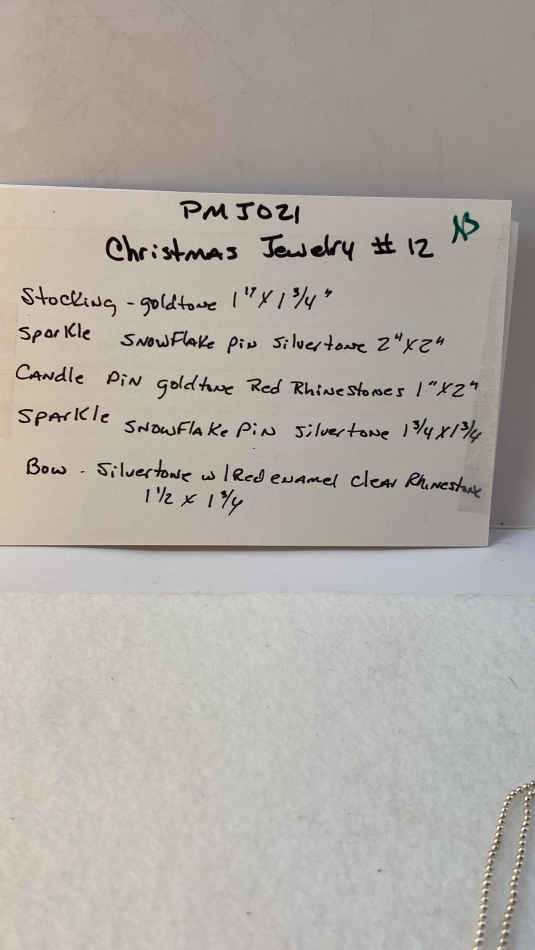 PMJ021
Christmas Jewelry # 12
NB
Stocking - goldtone 1" X 1 3/4"
Sparkle Snowflake pin silvertone 2" X 2"
Candle Pin goldtone Red Rhinestones 1" X 2"
Sparkle Snowflake Pin silvertone 1 3/4 X 1 3/4
Bow - Silvertone w/ Red enamel Clear Rhinestone
1 1/2 x 1 3/4